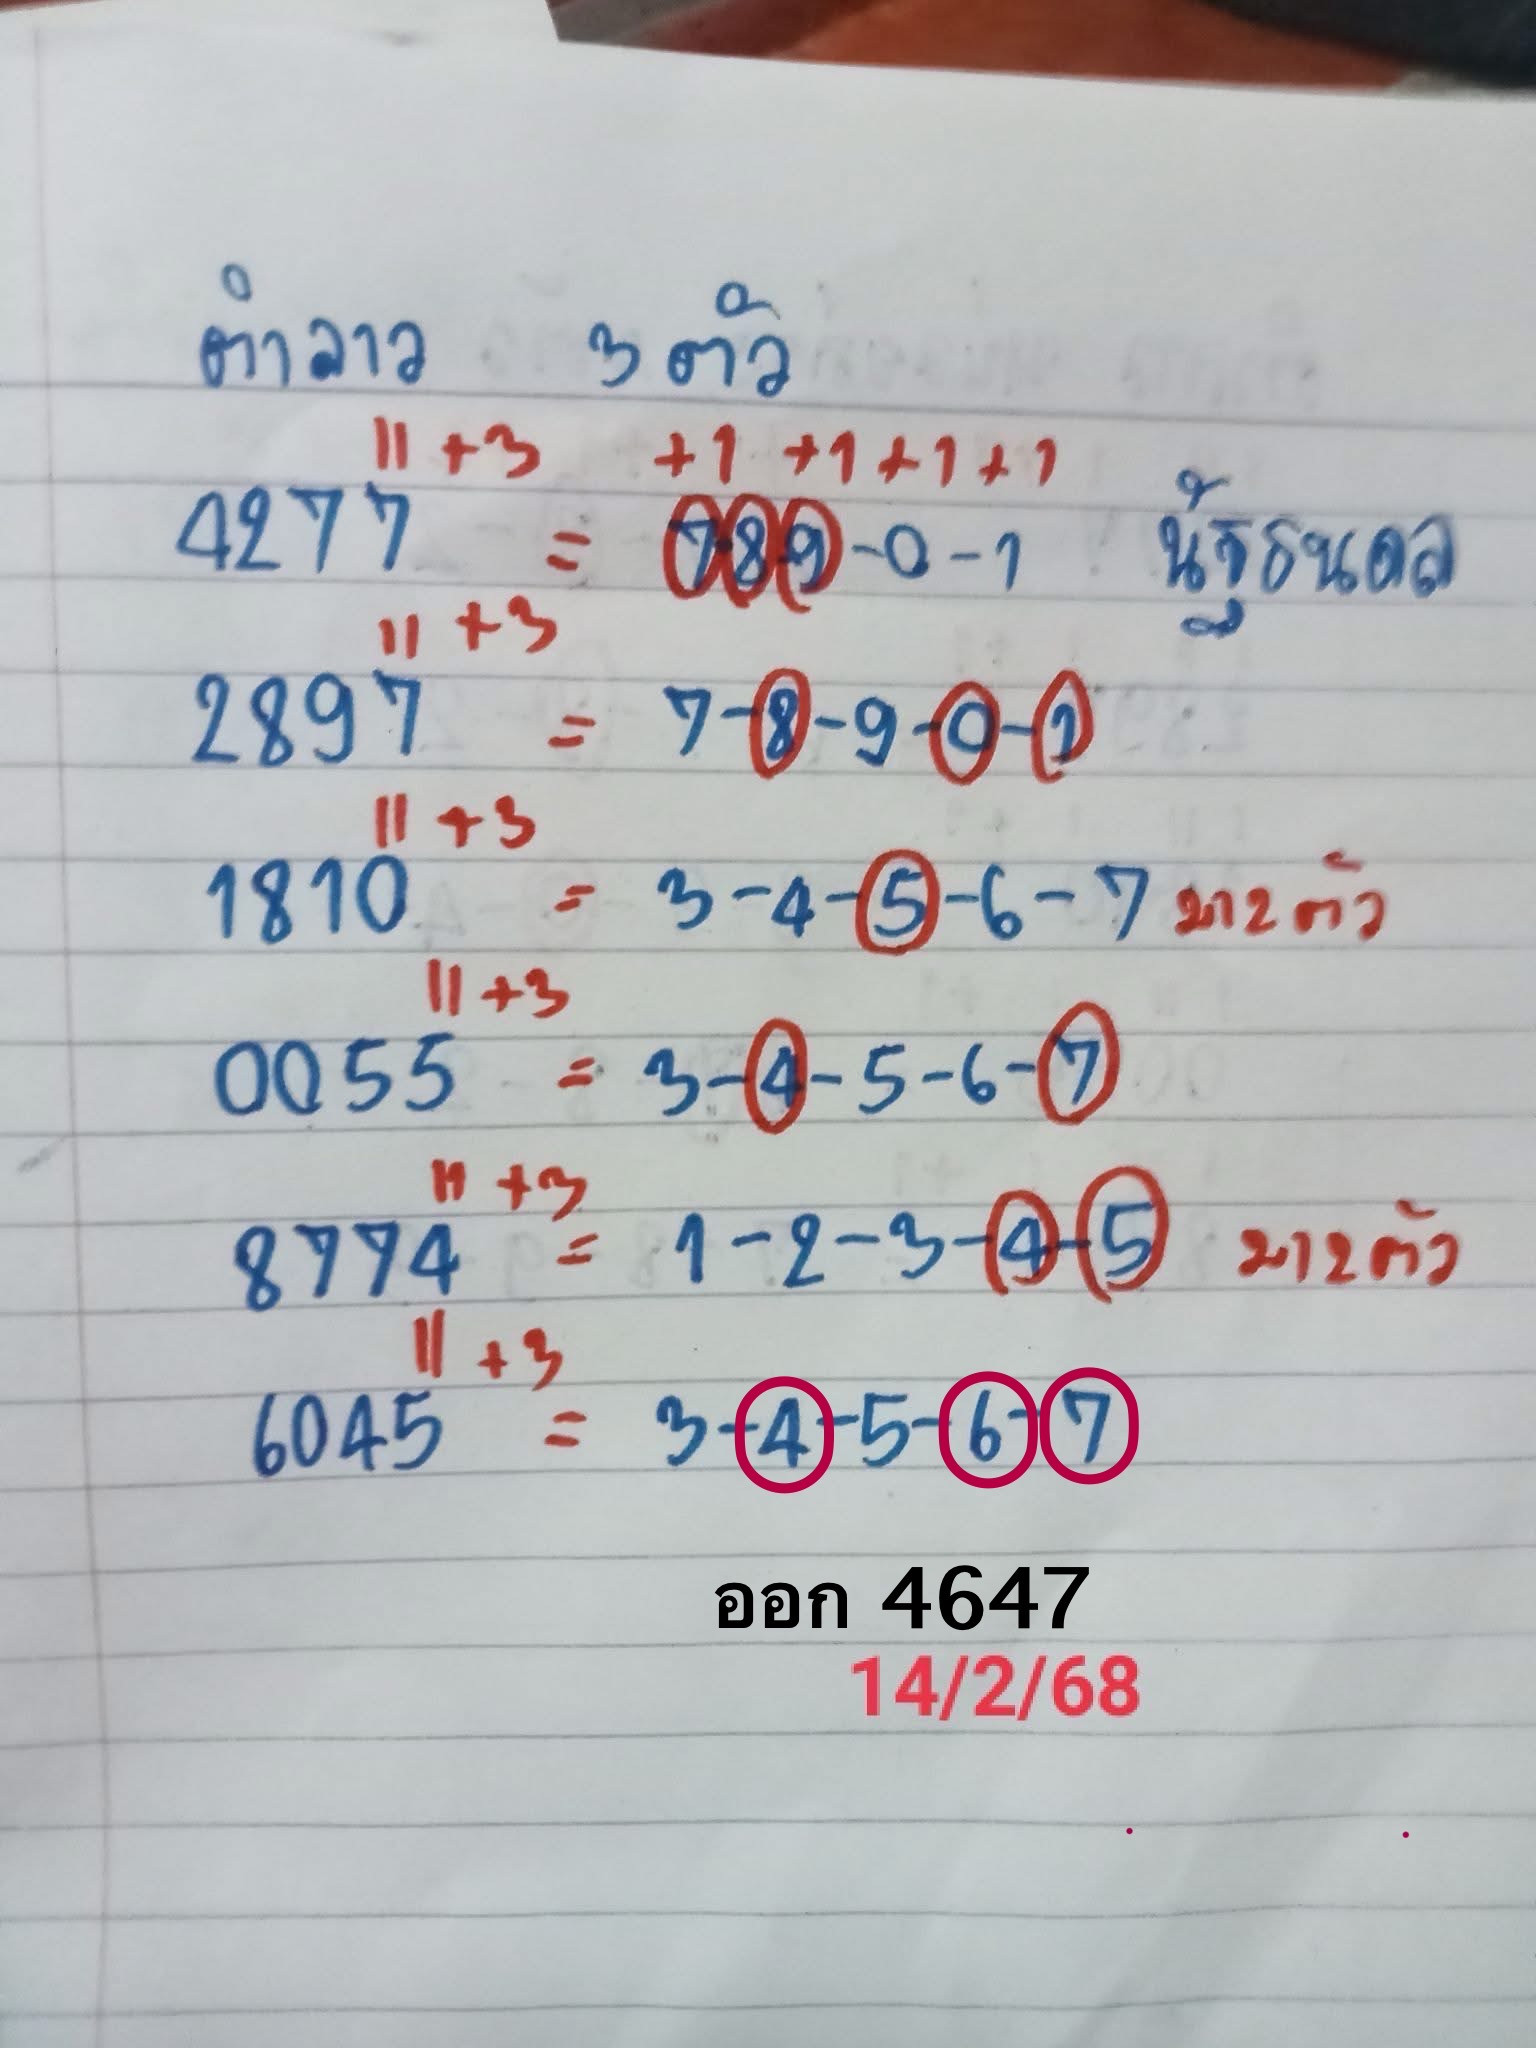 ตำลาว 3 ตัว
11 +3 +1 +1 +1 +1
4277 = 7 8 9 - 0 - 1 นัฐธนดล
11 +3
2897 = 7 - 8 - 9 - 0 - 1
11 +3
1810 = 3 - 4 - 5 - 6 - 7 มา 2 ตัว
11 +3
0055 = 3 - 4 - 5 - 6 - 7
11 +3
8774 = 1 - 2 - 3 - 4 - 5 มา 2 ตัว
11 +3
6045 = 3 - 4 - 5 - 6 - 7
ออก 4647
14/2/68